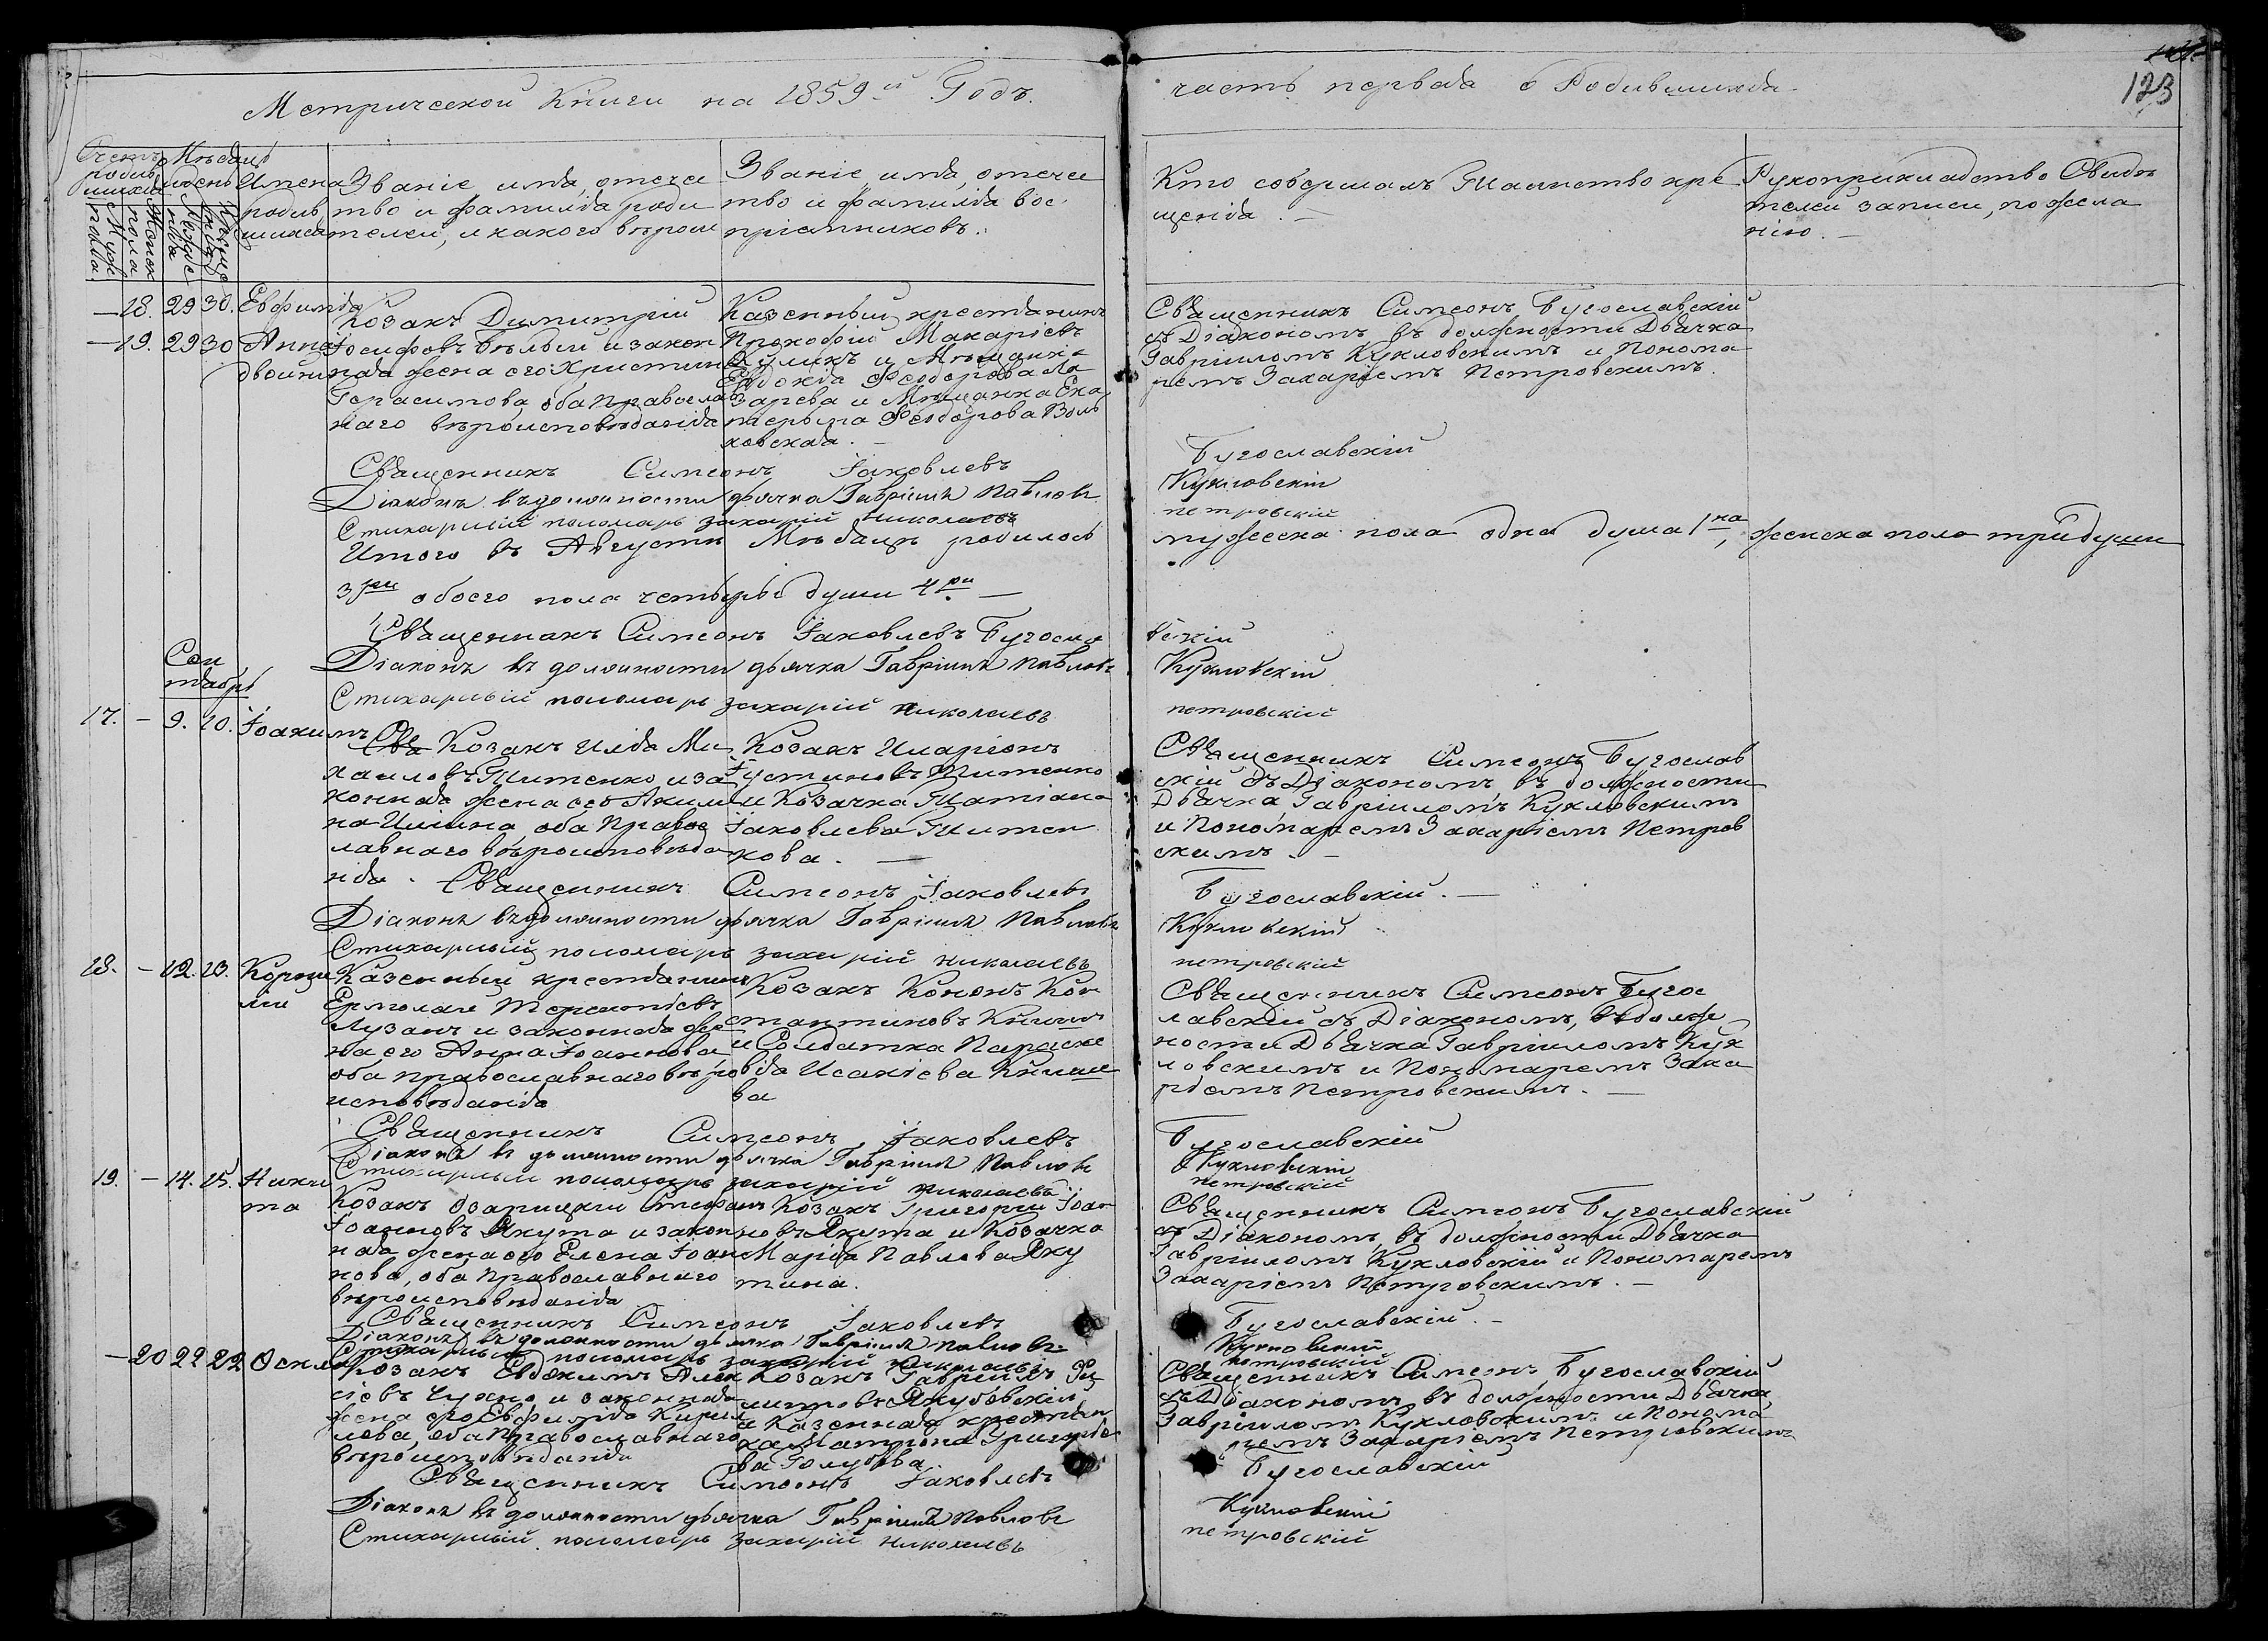 Метрической Книги на 1859й Годъ.
часть первая о Родившихся
123
Счетъ родив шихся
Муж пола
Женск пола
Мѣсяцъ и день
Рожде нія
Креще нія
Имена родив шихся
Званіе имя, отече
ство и фамилія роди
телей, и какого вѣрои
Званіе имя, отече
ство и фамилія вос
пріемниковъ.
Кто совершалъ Таинство кре
щенія. —
Рукоприкладство Свидѣ
телей записи, по жела
нію. —
— 18. 29 30. Евфимія
— 19. 29 30 Анна
двойни
Козакъ Димитрій
Іосифовъ Бѣлый и закон
ная жена его Христина
Герасимова оба Православ
наго вѣроисповѣданія
Казенный крестьянинъ
Прокофій Макаріевъ
Куликъ и Мѣщанка
Евдокія Феодорова Ла
зарева и Мѣщанка Ека
терина Феодорова Воль
ховская. —
Священникъ Симеонъ Бугославскій
съ Діакономъ въ должности Дьячка
Гавріиломъ Кукловскимъ и Понома
ремъ Захаріемъ Петровскимъ.
Священникъ Симеонъ Іаковлевъ Бугославскій
Діаконъ въ должности дьячка Гавріилъ Павловъ Кукловскій
Стихарный пономарь Захарій Николаевъ петровскій
Итого въ Августѣ Мѣсяцѣ родилось мужеска пола одна душа 1на, женска пола три души
3ри обоего пола четыре души 4ри —
Священникъ Симеонъ Іаковлевъ Бугосла вскій
Діаконъ въ должности дьячка Гавріилъ Павловъ Кукловскій
Стихарный пономарь Захарій Николаевъ петровскій
Сен
тябрь
17. — 9. 10. Іоакимъ
Козакъ Илія Ми
хаиловъ Титенко и за
конная жена его Акили
на Ильина, оба Правос
лавнаго вѣроисповѣда
нія.
Козакъ Иларіонъ
Іустиновъ Титенко
и Козачка Татіана
Іаковлева Титен
кова. —
Священникъ Симеонъ Бугослав
скій съ Діакономъ въ должности
Дьячка Гавріиломъ Кукловскимъ
и Пономаремъ Захаріемъ Петров
скимъ. —
Священникъ Симеонъ Іаковлевъ Бугославскій. —
Діаконъ въ должности дьячка Гавріилъ Павловъ Кукловскій
Стихарный пономарь Захарій Николаевъ петровскій
18. — 12. 13. Корни
лій
Казенный крестьянинъ
Ермолай Терентіевъ
Лузанъ и законная же
на его Анна Іоаннова
оба православнаго вѣро
исповѣданія
Козакъ Кононъ Кон
стантиновъ Книшъ
и Солдатка Параске
вія Исакіева Книше
ва
Священникъ Симеонъ Бугос
лавскій съ Діакономъ, въ долж
ности Дьячка Гавріиломъ Кук
ловскимъ и Пономаремъ Заха
ріемъ Петровскимъ. —
Священникъ Симеонъ Іаковлевъ Бугославскій
Діаконъ въ должности дьячка Гавріилъ Павловъ Кукловскій
Стихарный пономарь Захарій Николаевъ петровскій
19. — 14. 15. Ники
та
Козакъ Озарицкій Стефанъ
Іоанновъ Якута и закон
ная жена его Елена Іоан
нова, оба Православнаго
вѣроисповѣданія
Козакъ Григорій Іоан
новъ Якута и Козачка
Марія Павлова Яку
тина.
Священникъ Симеонъ Бугославскій
съ Діакономъ въ должности Дьячка
Гавріиломъ Кукловскій и Пономаремъ
Захаріемъ Петровскимъ. —
Священникъ Симеонъ Іаковлевъ Бугославскій. —
Діаконъ въ должности дьячка Гавріилъ Павловъ Кукловскій
Стихарный пономарь Захарій Николаевъ петровскій
— 20 22 22
Козакъ Евдокимъ Алек
сіевъ Чухно и законная
жена его Евфимія Кирил
лова, оба Православнаго
вѣроисповѣданія
Козакъ Гавріилъ
Якубовскій
и Казенная крестьян
ка Матрона Григоріе
ва Голубова
Священникъ Симеонъ Бугославскій
съ Діакономъ въ должности Дьячка,
Гавріиломъ Кукловскимъ и Понома
ремъ Захаріемъ Петровскимъ
Священникъ Симеонъ Іаковлевъ Бугославскій
Діаконъ въ должности дьячка Гавріилъ Павловъ Кукловскій
Стихарный пономарь Захарій Николаевъ петровскій